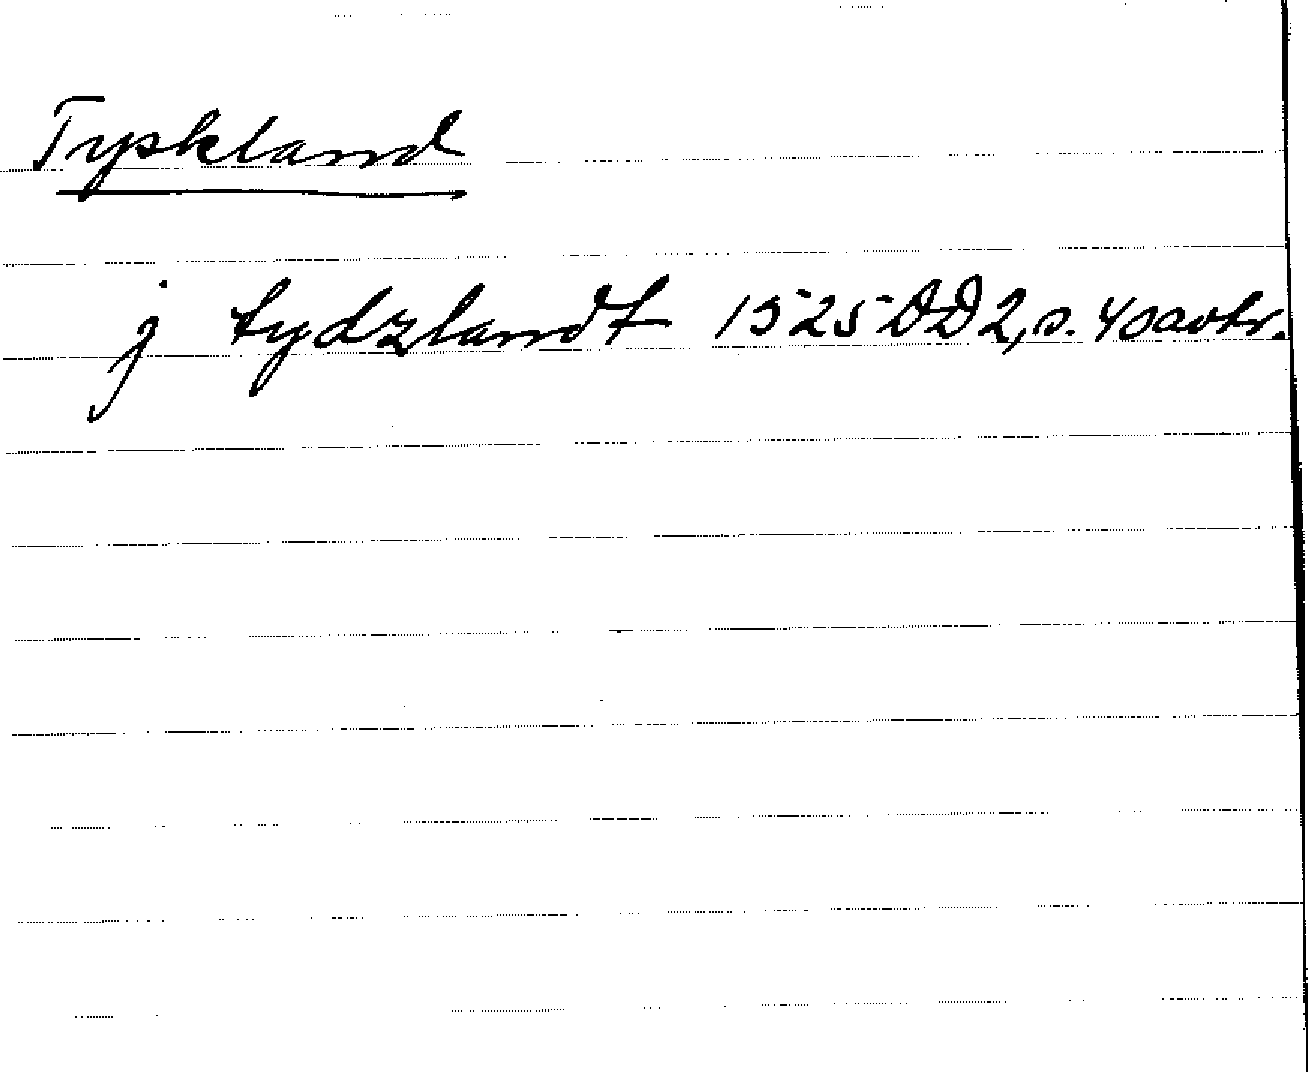 Tyskland
j tydzlandt 1525 DD2, s. 40 avskr.